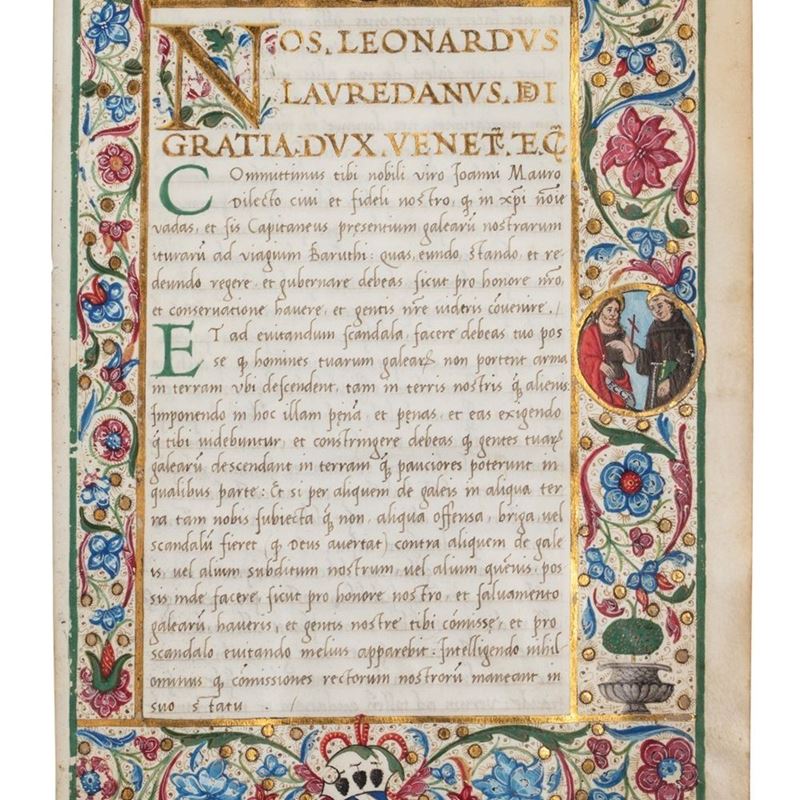 NOS. LEONARDVS
LAVREDANVS. DEI
GRATIA. DVX. VENET̄. ET.C̄
Committimus tibi nobili viro Joanni Mauro
Dilecto civi et fideli nostro, q̃ in xp̄i nōie
vadas, et sis Capitaneus presentium galearū nostrarum
iturarū ad viagium Baruthi: quas, eundo, stando, et re-
deundo regere, et gubernare debeas sicut pro honore nr̄o,
et conservatione havere, et gentis nr̄e videris cōvenire./
ET ad evitandum scandala, facere debeas tuo pos
se q̃ homines tuarum galearꝝ non portent arma
in terram vbi descendent, tam in terris nostris q̃ alienis
Imponendo in hoc illam penā, et penas, et eas exigendo,
q̃ tibi videbuntur, et constringere debeas q̃ gentes tuarꝝ
galearū descendant in terram q̃ pauciores poterunt in
qualibus parte: Et si per aliquem de galeis in aliqua ter
ra tam nobis subiecta q̃ non, aliqua offensa, briga, vel
scandalū fieret (q̃ Deus avertat) contra aliquem de gale
is, vel alium subditum nostrum, vel alium quēvis, pos
sis inde facere, sicut pro honore nostro, et salvamento
galearū, haveris, et gentis nostre tibi cōmisse, et pro
scandalo evitando melius apparebit: Intelligendo nihil-
ominus q̃ cōmissiones rectorum nostrorū maneant in
suo statu ./